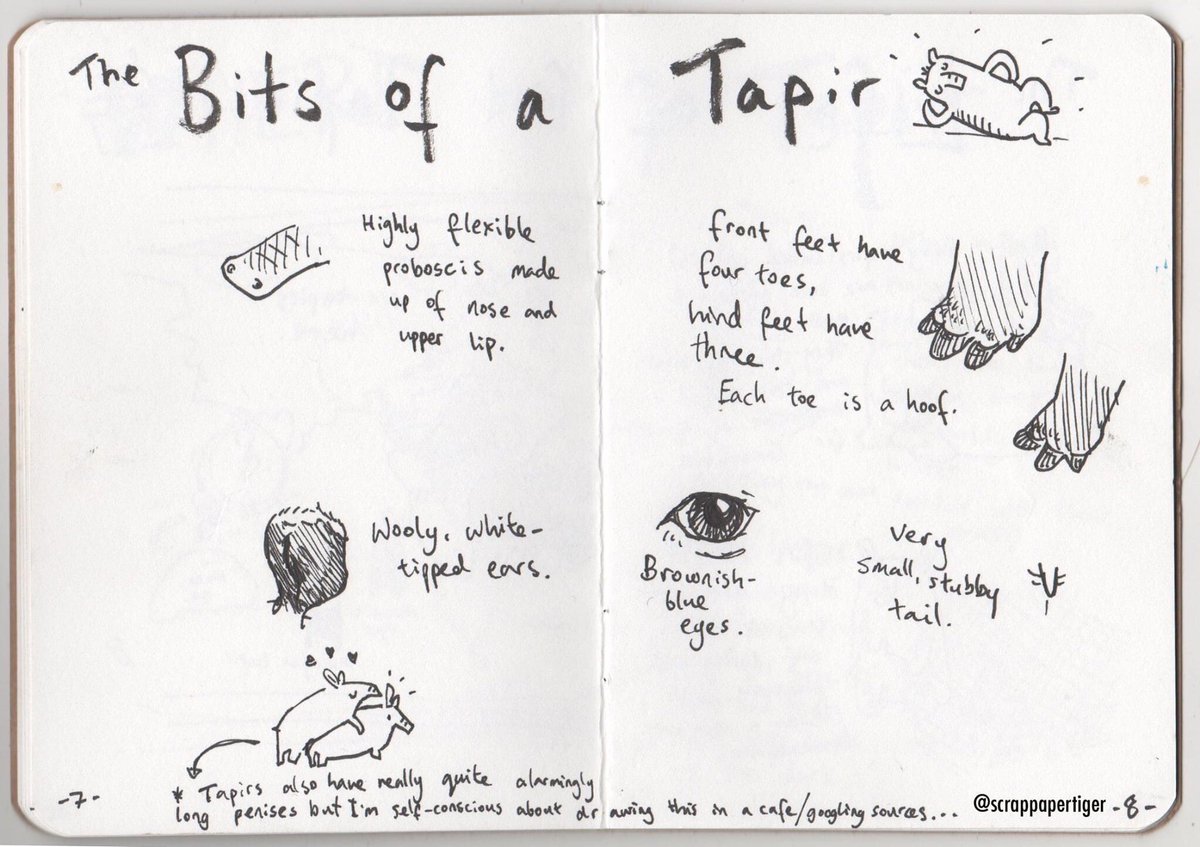 The Bits of a Tapir
Highly flexible
proboscis made
up of nose and
upper lip.
front feet have
four toes,
hind feet have
three.
Each toe is a hoof.
Wooly, white-
tipped ears.
Brownish-
blue
eyes.
Very
small, stubby
tail.
* Tapirs also have really quite alarmingly
long penises but I'm self-conscious about drawing this in a cafe/googling sources...
-7-
@scrappapertiger -8-